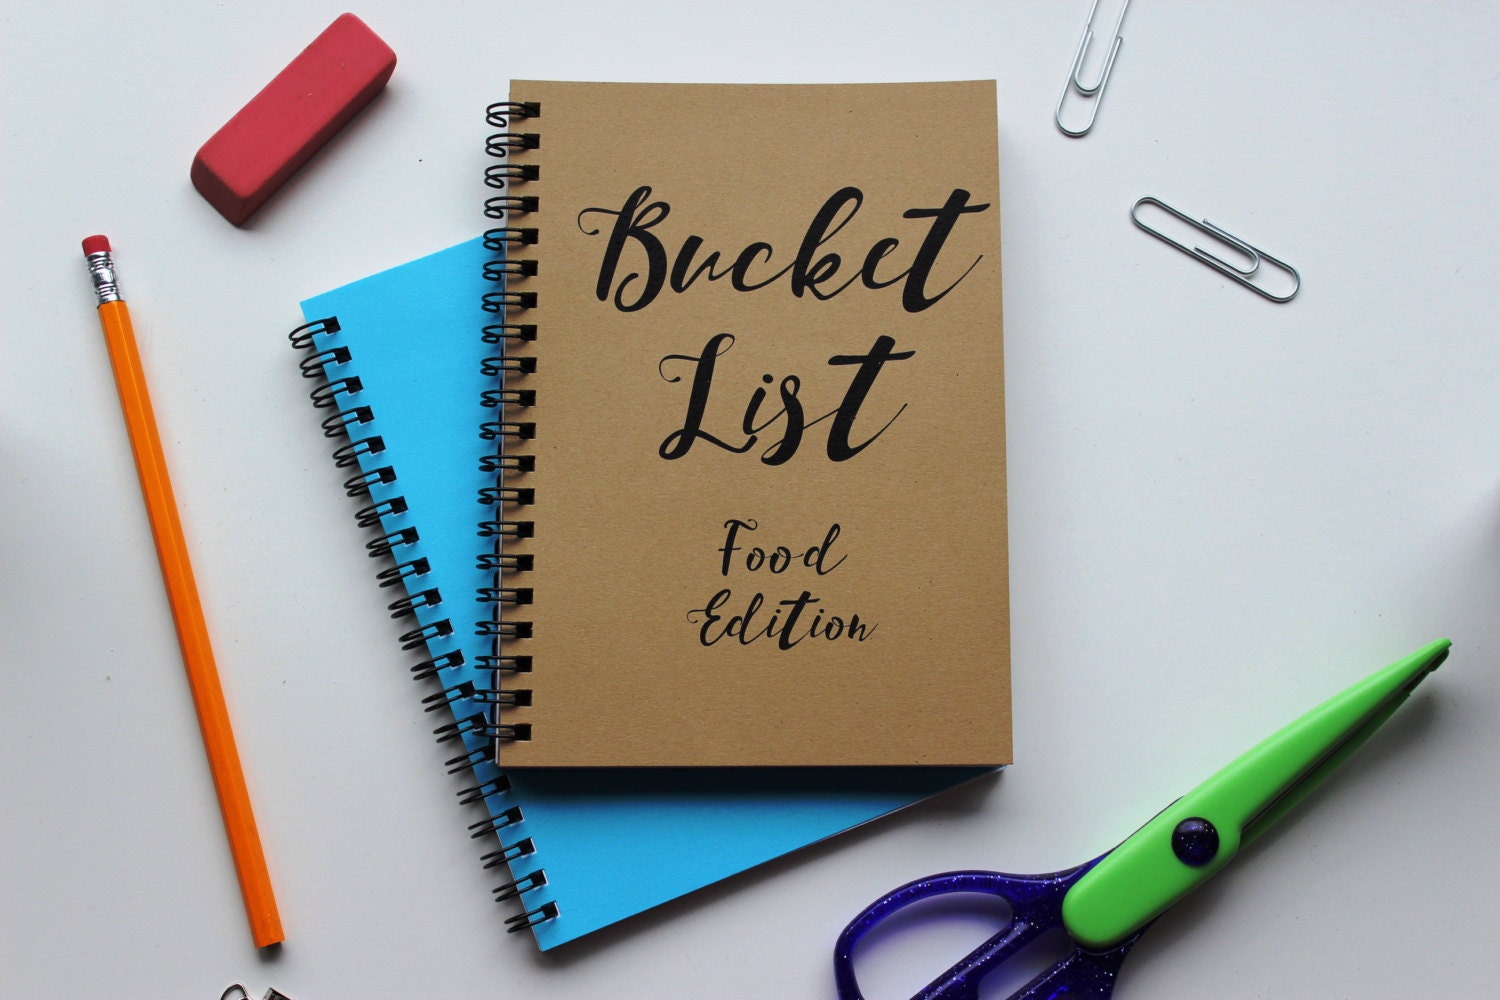 Bucket
List
Food
Edition